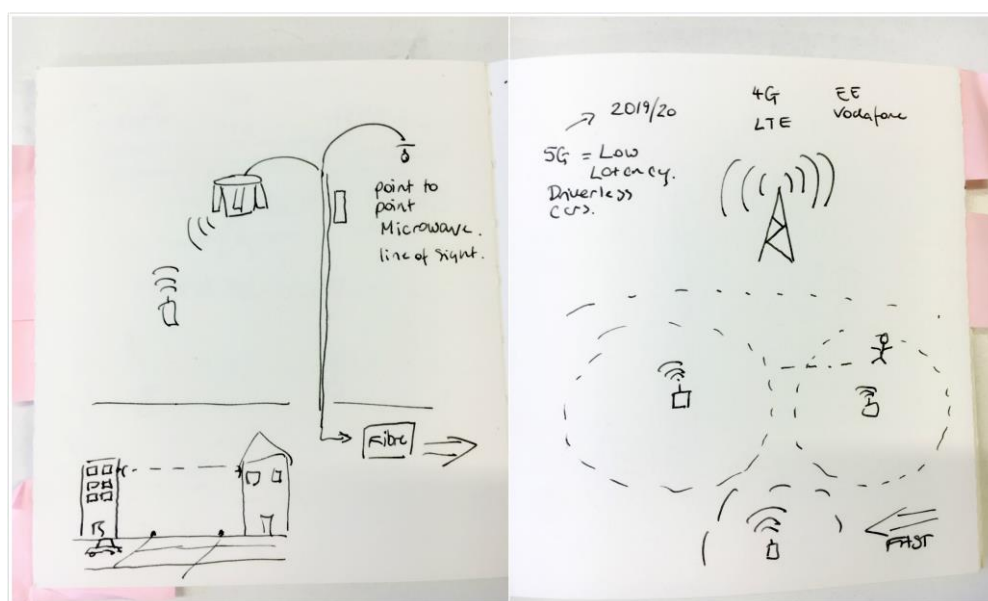 point to
point
Microwave.
line of sight.
Fibre
2019/20
5G = Low
Latency.
Driverless
cars.
4G
LTE
EE
Vodafone
FAST